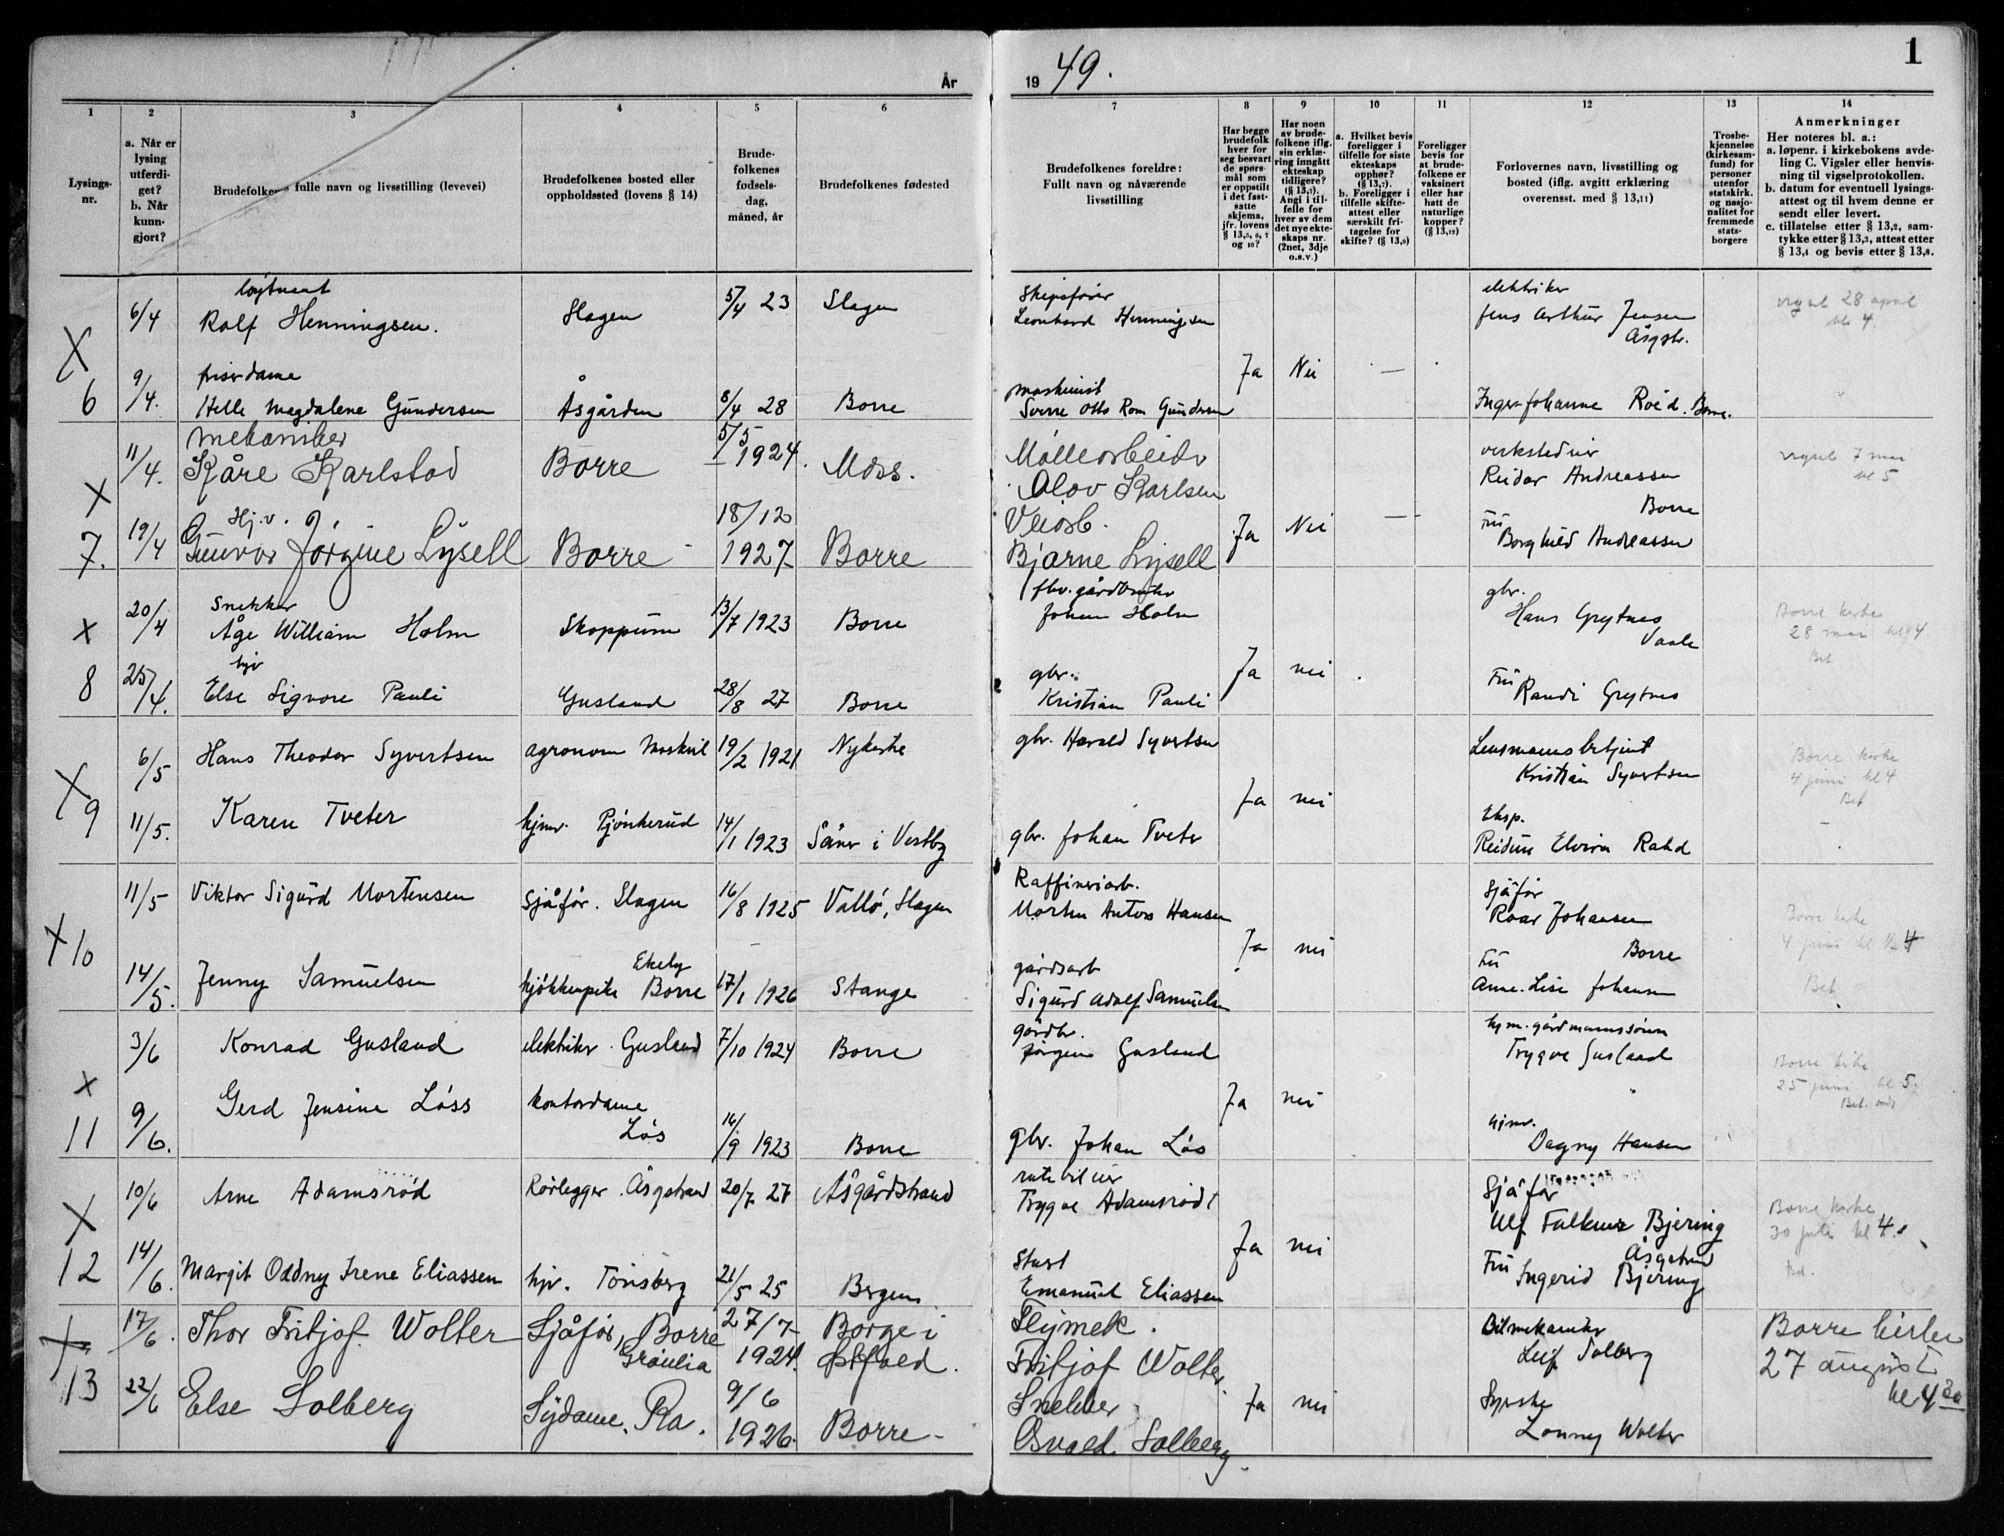 År
19 49.
1
1 2 3 4 5 6 7 8 9 10 11 12 13 14
Lysings-
nr.
a. Når er
lysing
utferdi-
get?
b. Når
kunn-
gjort?
Brudefolkenes fulle navn og livsstilling (levevei)
Brudefolkenes bosted eller
oppholdssted (lovens § 14)
Brude-
folkenes
fødsels-
dag,
måned, år
Brudefolkenes fødested
Brudefolkenes foreldre:
Fullt navn og nåværende
livsstilling
Har begge
brudefolk
hver for
seg besvart
de spørs-
mål som
er oppstilt
i det fast-
satte
skjema,
jfr. lovens
§ 13,5, 6, 7
og 10?
Har noen
av brude-
folkene iflg.
sin erklæ-
ring inngått
ekteskap
tidligere?
(§ 13,7).
Angi i til-
felle for
hver av dem
det nye ekte-
skaps nr.
(2net, 3dje
o.s.v.)
a. Hvilket bevis
foreligger i
tilfelle for siste
ekteskaps
opphør?
(§ 13,7).
b. Foreligger i
tilfelle skifte-
attest eller
særskilt fri-
tagelse for
skifte? (§ 13,9)
Foreligger
bevis for
at brude-
folkene er
vaksinert
eller har
hatt de
naturlige
kopper?
(§ 13,12)
Forlovernes navn, livsstilling og
bosted (iflg. avgitt erklæring
overensst. med § 13,11)
Trosbe-
kjennelse
(kirkesam-
fund) for
personer
utenfor
statskirk.
og nasjo-
nalitet for
fremmede
stats-
borgere
Anmerkninger
Her noteres bl. a.:
a. løpenr. i kirkebokens avde-
ling C. Vigsler eller henvis-
ning til vigselprotokollen.
b. datum for eventuell lysings-
attest og til hvem denne er
sendt eller levert.
c. tillatelse etter § 13,2, sam-
tykke etter § 13,3, attest etter
§ 13,4 og bevis etter § 13,8.
løytnant
X 6/4 Rolf Henningsen. Slagen 5/4 23 Slagen
Skipsfører
Leonhard Henningsen
elektriker
Jens Arthur Jensen
Åsgstr.
vigsel 28 april
kl. 4
Ja Nei —
6 9/4. frisørdame
Helle Magdalene Gundersen Åsgården 8/4 28 Borre
maskinist
Sverre Otto Rom Gundersen
Inger-Johanne Roed. Borre.
X 11/4. mekaniker
Kåre Karlstad Borre 5/5 1924. Moss.
Mølleorbeider
Olav Karlsen
verkstedeier
Reidar Andreassen
Borre
vigsel 7 mai
kl 5
7. 19/4 Hj.v.
Gunvor Jørgine Lysell Borre 18/12 1927 Borre
Veiarb.
Bjarne Lysell
Ja Nei —
Fru
Borghild Andreassen
X 20/4 Snekker
Åge William Holm Skoppum 13/7 1923 Borre
fhv. gårdbruker
Johan Holm
gbr.
Hans Grytnes
Vaale
Borre kirke
28 mai kl 4
Bet
8 25/4. hjv
Else Signore Pauli Gusland 28/8 27 Borre
gbr.
Kristian Pauli
Ja nei
Fru Randi Grytnes
X 6/5 Hans Theodor Syvertsen agronom 19/2 1921 Nykirke
gbr. Harald Syvertsen
Lensmannsbetjent
Kristian Syvertsen
Borre kirke
4 juni kl 4
Bet
9 11/5. Karen Tveter hjmv. Pjønkerud 14/1 1923 Såner i Vestby
gbr. Johan Tveter
Ja nei
Eksp.
Reidun Elvira
X 10 11/5 Viktor Sigurd Mortensen sjåfør. Slagen 16/8 1925 Vallø, Slagen
Raffineriarb.
Morten Anton Hansen
Sjåfør
Roar Johansen
Borre
Borre kirke
4 juni kl 4
Bet
14/5. Jenny Samuelsen kjøkkenpike Ekely
Borre 17/1 1926 Stange
gårdsarb
Sigurd Adolf Samuelsen
Ja nei
Fru
Anne-Lise Johansen
X 3/6 Konrad Gusland elektriker. Gusland 7/10 1924 Borre
gårdbr.
Jørgen Gusland
gårdmannssønn
Trygve Gusland
Borre kirke
25 juni kl 5.
11 9/6. Gerd Jensine Løss kontordame
Løs 16/9 1923 Borre
gbr. Johan Løs
Ja nei
hjmv.
Dagny Hansen
X 10/6 Arne Adamsrød Rørlegger. Åsgstrand 20/7 27 Åsgårdstrand
rutebileier
Trygve Adamsrødt
Sjåfør
Ulf Falkner Bjering
Åsgstrand
Borre kirke
30 juli kl 4.
Bet.
12 14/6. Margit Oddny Irene Eliassen hjv. Tønsberg 21/5 25 Bergen
Emanuel Eliassen
Ja nei
Fru Ingerid Bjering
X 17/6. Thor Fritjof Wolter Sjåfør, Borre
Grønlia 27/7 1924. Borge i
Østfold.
Flymek.
Fritjof Wolter.
Bilmekaniker
Leif Solberg
Borre kirke
27 august
kl 4 30
13 22/6 Else Solberg Sydame. Ra. 9/6 1926. Borre
Snekker
Osvald Solberg
Ja nei
Syerske
Lonny Wolter